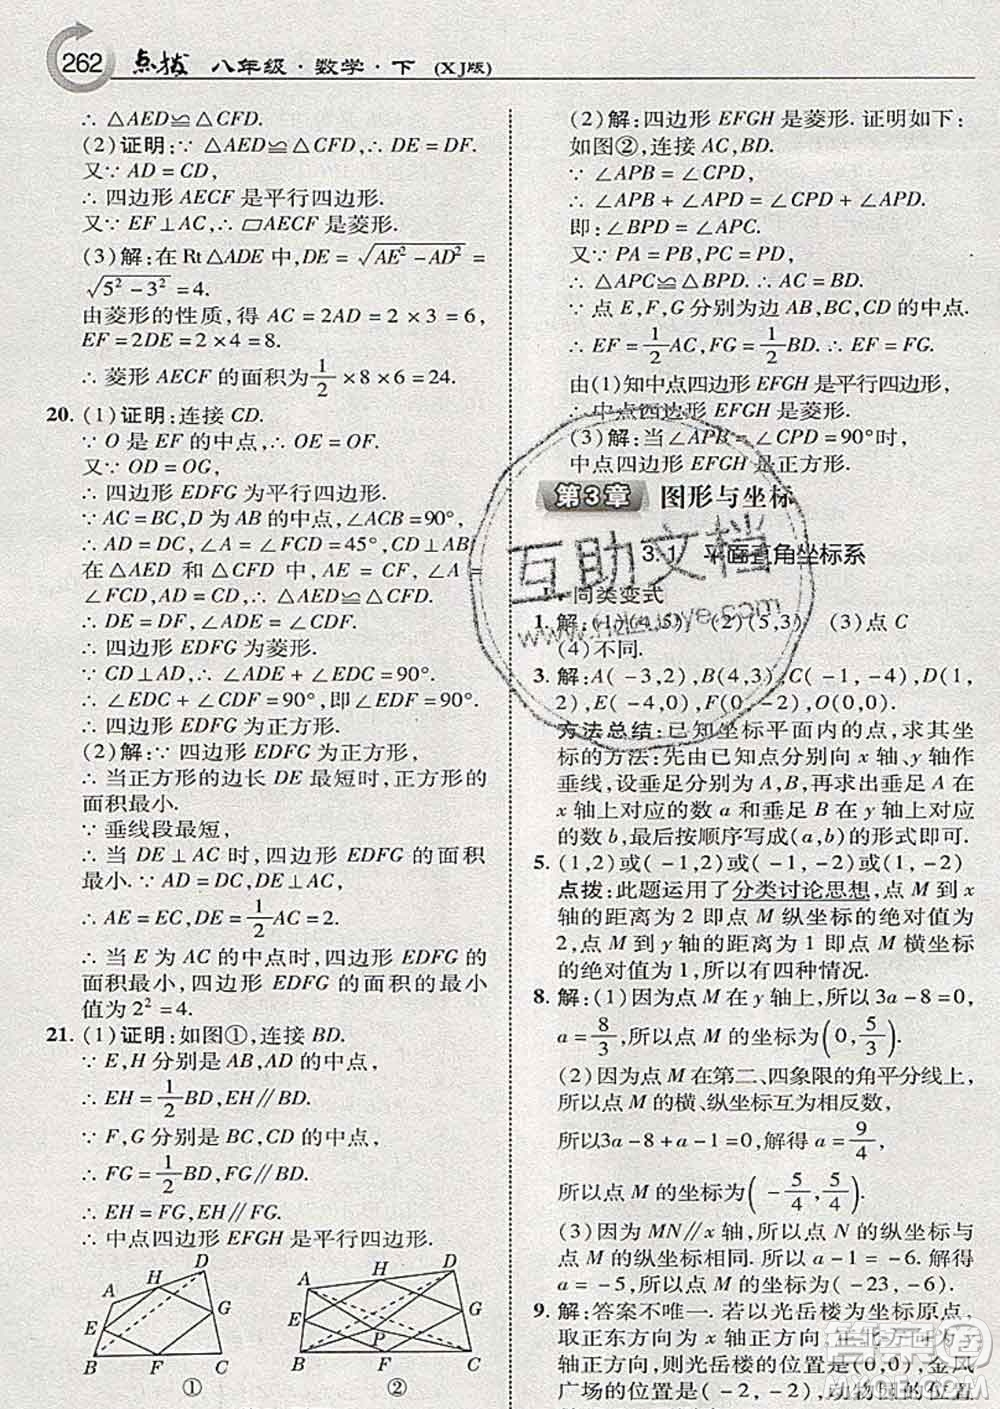 262 点拨 八年级·数学·下 (XJ版)
∴ △AED≌△CFD.
(2)证明:∵ △AED≌△CFD,∴ DE = DF.
又∵ AD = CD,
∴ 四边形 AECF 是平行四边形.
又∵ EF⊥AC,∴ ▱AECF 是菱形.
(3)解:在 Rt△ADE 中,DE = √(AE² − AD²) =
√(5² − 3²) = 4.
由菱形的性质,得 AC = 2AD = 2 × 3 = 6,
EF = 2DE = 2 × 4 = 8.
∴ 菱形 AECF 的面积为 1/2 × 8 × 6 = 24.
20. (1)证明:连接 CD.
∵ O 是 EF 的中点,∴ OE = OF.
又∵ OD = OG,
∴ 四边形 EDFG 为平行四边形.
∵ AC = BC,D 是 AB 的中点,∠ACB = 90°,
∴ AD = CD,∠A = ∠FCD = 45°,∠ADC = 90°.
在△ADE 与△CDF 中,∵ AE = CF,∠A = ∠DCF,AD = CD,∴ △ADE≌△CDF.
∴ DE = DF,∠ADE = ∠CDF.
∴ 四边形 EDFG 为菱形.
∵ CD⊥AD,∴ ∠ADE + ∠EDC = 90°.
∴ ∠EDC + ∠CDF = 90°,即∠EDF = 90°.
∴ 四边形 EDFG 为正方形.
(2)解:∵ 四边形 EDFG 为正方形,
∴ 当正方形的边长 DE 最短时,正方形的
面积最小.
∵ 垂线段最短,
∴ 当 DE⊥AC 时,四边形 EDFG 的面积
最小.∵ AD = DC,DE⊥AC,
∴ AE = EC,DE = 1/2 AC = 2.
∴ 当 E 为 AC 的中点时,四边形 EDFG 的
面积最小,四边形 EDFG 的面积的最小
值为 2² = 4.
21. (1)证明:如图①,连接 BD.
∵ E,H 分别是 AB,AD 的中点,
∴ EH = 1/2 BD,EH∥BD.
∵ F,G 分别是 BC,CD 的中点,
∴ FG = 1/2 BD,FG∥BD.
∴ EH∥FG,EH = FG.
∴ 中点四边形 EFGH 是平行四边形.
A H D E G B F C
①
A H D E G B F P C
②
(2)解:四边形 EFGH 是菱形. 证明如下:
如图②,连接 AC,BD.
∵ ∠APB = ∠CPD,
∴ ∠APB + ∠APD = ∠CPD + ∠APD.
即:∠BPD = ∠APC.
又∵ PA = PB,PC = PD,
∴ △APC≌△BPD.∴ AC = BD.
∵ 点 E,F,G 分别为边 AB,BC,CD 的中点.
∴ EF = 1/2 AC,FG = 1/2 BD.∴ EF = FG.
由(1)知中点四边形 EFGH 是平行四边形,
∴ 中点四边形 EFGH 是菱形.
(3)解:当∠APB = ∠CPD = 90°时,
中点四边形 EFGH 是正方形.
第3章 图形与坐标
3.1 平面直角坐标系
同类变式
1. 解:(1)(4,5) (2)(5,3) (3)点 C
(4)不同.
3. 解:A(−3,2),B(4,3),C(−4,−4),D(5,−2),E(−4,0),F(0,−2),O(0,0).
方法总结:已知坐标平面内的点,求其坐
标的方法:先由已知点分别向 x 轴、y 轴作
垂线,设垂足分别为 A,B,再求出垂足 A 在
x 轴上对应的数 a 和垂足 B 在 y 轴上对应
的数 b,最后按顺序写成(a,b)的形式即可.
5. (1,2)或(−1,2)或(−1,−2)或(1,−2)
点拨:此题运用了分类讨论思想,点 M 到 x
轴的距离为 2 即点 M 纵坐标的绝对值为
2,点 M 到 y 轴的距离为 1 即点 M 横坐标
的绝对值为 1,所以有四种情况.
8. 解:(1)因为点 M 在 y 轴上,所以 3a − 8 = 0,
a = 8/3,所以点 M 的坐标为(0,5/3).
(2)因为点 M 在第二、四象限的角平分线上,
所以点 M 的横、纵坐标互为相反数,
所以3a − 8 + a − 1 = 0,解得 a = 9/4,
所以点 M 的坐标为(−5/4,5/4).
(3)因为 MN∥x 轴,所以点 N 的纵坐标与
点 M 的纵坐标相同. 所以 a − 1 = −6. 解得
a = −5,所以点 M 的坐标为(−23,−6).
9. 解:答案不唯一. 若以光岳楼为坐标原点,
取正东方向为 x 轴正方向,正北方向为 y
轴正方向,则光岳楼的位置是(0,0),金凤
广场的位置是(−2,−2),动物园的位置
互助文档